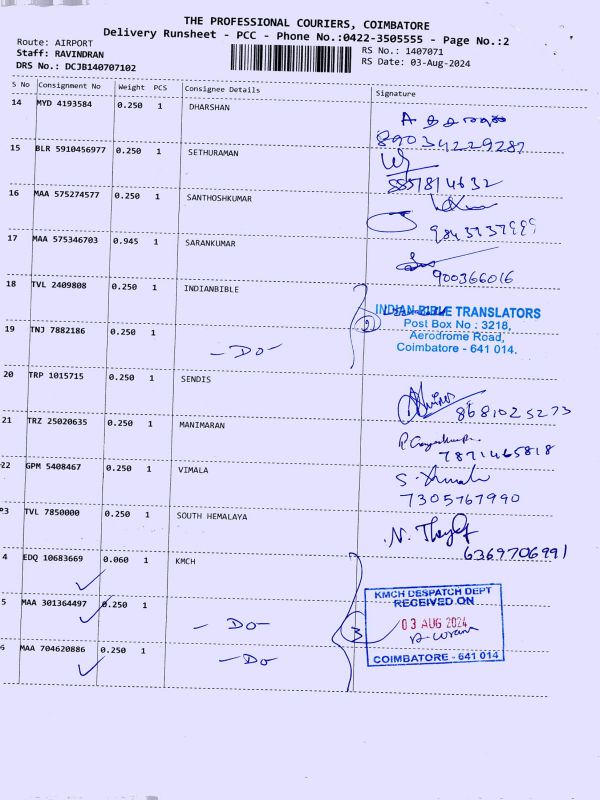 THE PROFESSIONAL COURIERS, COIMBATORE
Delivery Runsheet - PCC - Phone No.:0422-3505555 - Page No.:2
Route: AIRPORT
Staff: RAVINDRAN
DRS No.: DCJB140707102
RS No.: 1407071
RS Date: 03-Aug-2024
S No Consignment No Weight PCS Consignee Details Signature
14 MYD 4193584 0.250 1 DHARSHAN
89034229287
15 BLR 5910456977 0.250 1 SETHURAMAN
8857814632
16 MAA 575274577 0.250 1 SANTHOSHKUMAR
9843737999
17 MAA 575346703 0.945 1 SARANKUMAR
900366016
18 TVL 2409808 0.250 1 INDIANBIBLE
INDIAN BIBLE TRANSLATORS
Post Box No : 3218,
Aerodrome Road,
Coimbatore - 641 014.
2
19 TNJ 7882186 0.250 1
- Do -
20 TRP 1015715 0.250 1 SENDIS
8681025273
21 TRZ 25020635 0.250 1 MANIMARAN
7871465818
22 GPM 5408467 0.250 1 VIMALA
7305767990
23 TVL 7850000 0.250 1 SOUTH HEMALAYA
6369706991
4 EDQ 10683669 0.060 1 KMCH
KMCH DESPATCH DEPT
RECEIVED ON
03 AUG 2024
COIMBATORE - 641 014
5 MAA 301364497 0.250 1 - Do -
3
6 MAA 704620886 0.250 1 - Do -